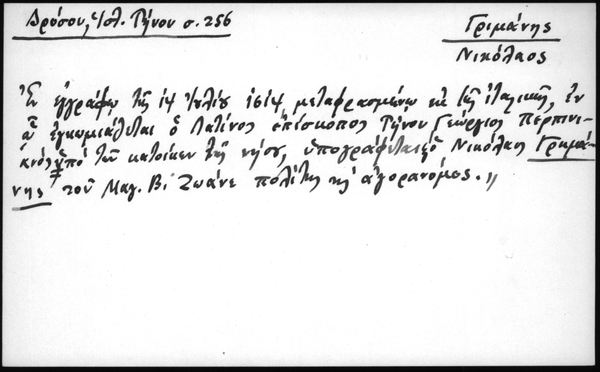 Δρόσου, Ἱστ. Τήνου σ. 256
Γριμάνης
Νικόλαος
Ἐν ἐγγράφῳ τῆς ἰουλίου μεταφρασμένῳ ἐκ τῆς ἰταλικῆς, ἐν
ᾧ ἐγκωμιάζεται ὁ Λατῖνος ἐπίσκοπος Τήνου Γεώργιος Περπινι-
ανός ὑπό τῶν κατοίκων τῆς νήσου, ὑπογράφεται ὁ Νικόλαος Γριμά-
νης τοῦ Μαγ. Βι Ζωάνε πολίτης κ̀ ἀγορανόμος. //